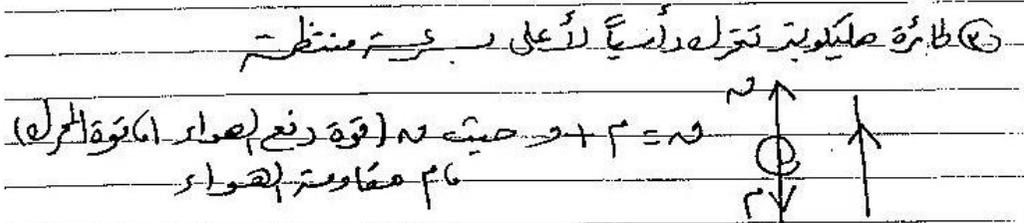 ③ طائرة هليكوبتر تتحرك رأسياً لأعلى بسرعة منتظمة
ن
ن = م + و حيث ن (قوة دفع الهواء أ، قوة المحرك)
، م مقاومة الهواء
م